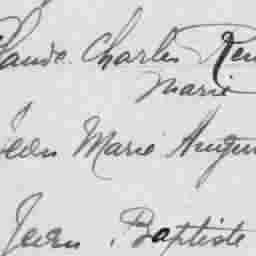 Claude Charles René
Marie
Jean Marie Augus
Jean Baptiste